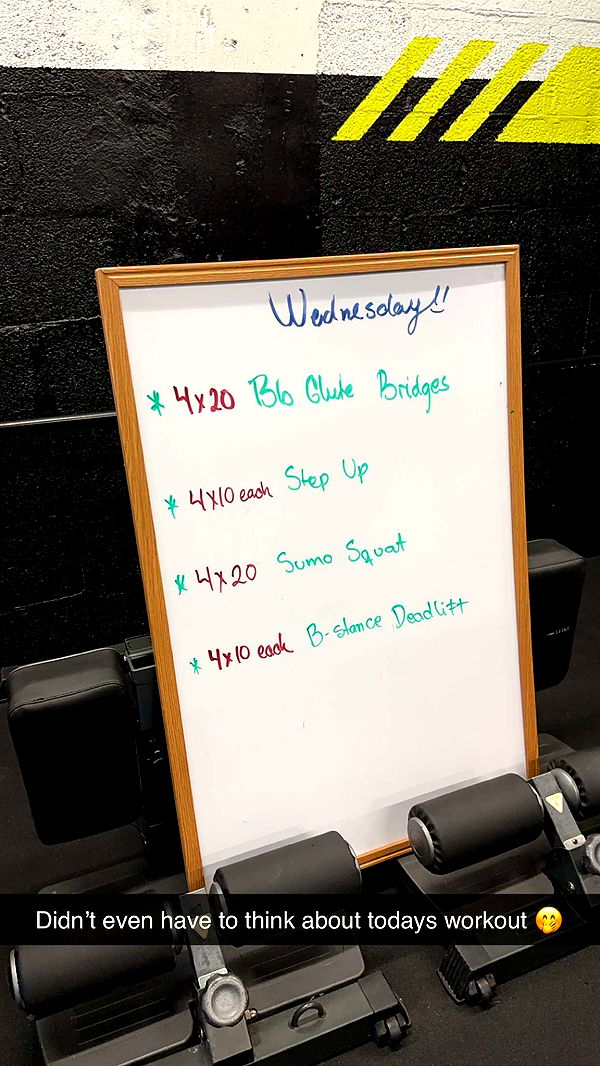 Wednesday!!
* 4x20 Bb Glute Bridges
* 4x10 each Step Up
* 4x20 Sumo Squat
* 4x10 each B-stance Deadlift
Didn’t even have to think about todays workout 🤭